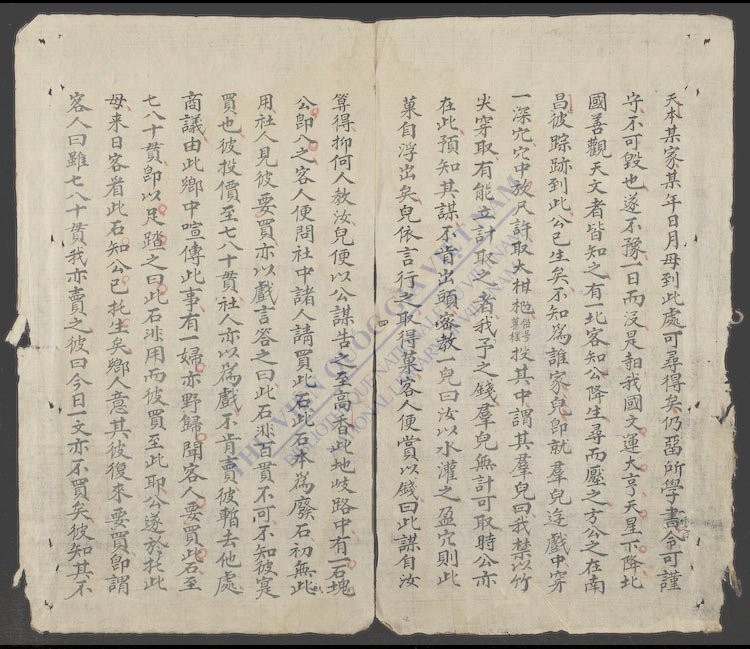 天本某家某年日月母到此處可尋得矣仍畱所學書令可謹
守不可毀也遂不豫一日而沒是朝我國文運大亨天星下降北
國善觀天文者皆知之有一北客知公降生尋而壓之方公之在南
昌彼踪跡到此公已生矣不知為誰家兒卽就羣兒遊戲中穿
一深穴穴中放尺許取大柑𣐳俗号算樣投其中謂其羣兒曰我禁以竹
尖穿取有能立計取之者我予之錢羣兒無計可取時公亦
在此預知其謀不肯出頭密教一兒曰汝以水灌之盈穴則此
菓自浮出矣兒依言行之取得菓客人便賞以錢曰此謀自汝
四
算得抑何人教汝兒便以公謀告之至高香此地岐路中有一石塊
公卽八之客人便問社中諸人請買此石此石本為廢石初無此
用社人見彼要買亦以戲言答之曰此石非百貫不可不知彼寔
買也彼投價至七八十貫社人亦以為戲不肯賣彼暫去他處
商議由此鄉中喧傳此事有一婦亦野歸聞客人要買此石至
七八十貫卽以足踏之曰此石非用而彼買至此耶公遂於托此
母來日客看此石知公已托生矣鄉人意其彼復來要買卽謂
客人曰雖七八十貫我亦賣之彼曰今日一文亦不買矣彼知其不
THƯ VIỆN QUỐC GIA VIỆT NAM
BIBLIOTHÈQUE NATIONALE DU VIETNAM
NATIONAL LIBRARY OF VIETNAM